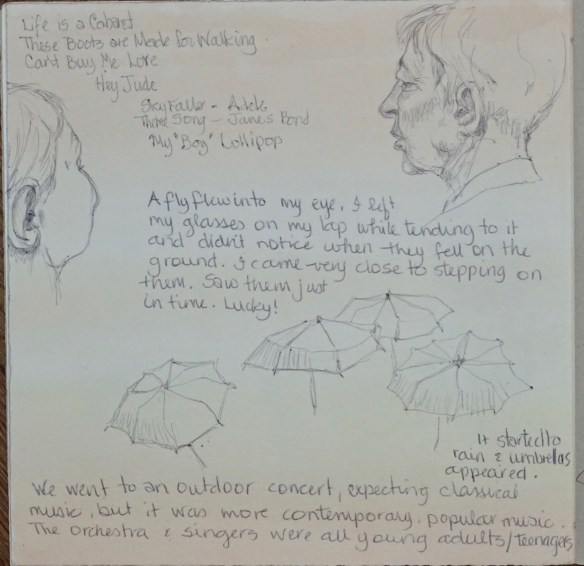 Life is a Cabaret
These Boots are Made for Walking
Can't Buy Me Love
Hey Jude
Skyfaller - Adele
Theme Song - James Bond
My "Boy" Lollipop
A fly flew into my eye. I left
my glasses on my lap while tending to it
and didn't notice when they fell on the
ground. I came very close to stepping on
them. Saw them just
in time. Lucky!
It started to
rain & umbrellas
appeared.
We went to an outdoor concert, expecting classical
music, but it was more contemporary, popular music.
The orchestra & singers were all young adults/teenagers